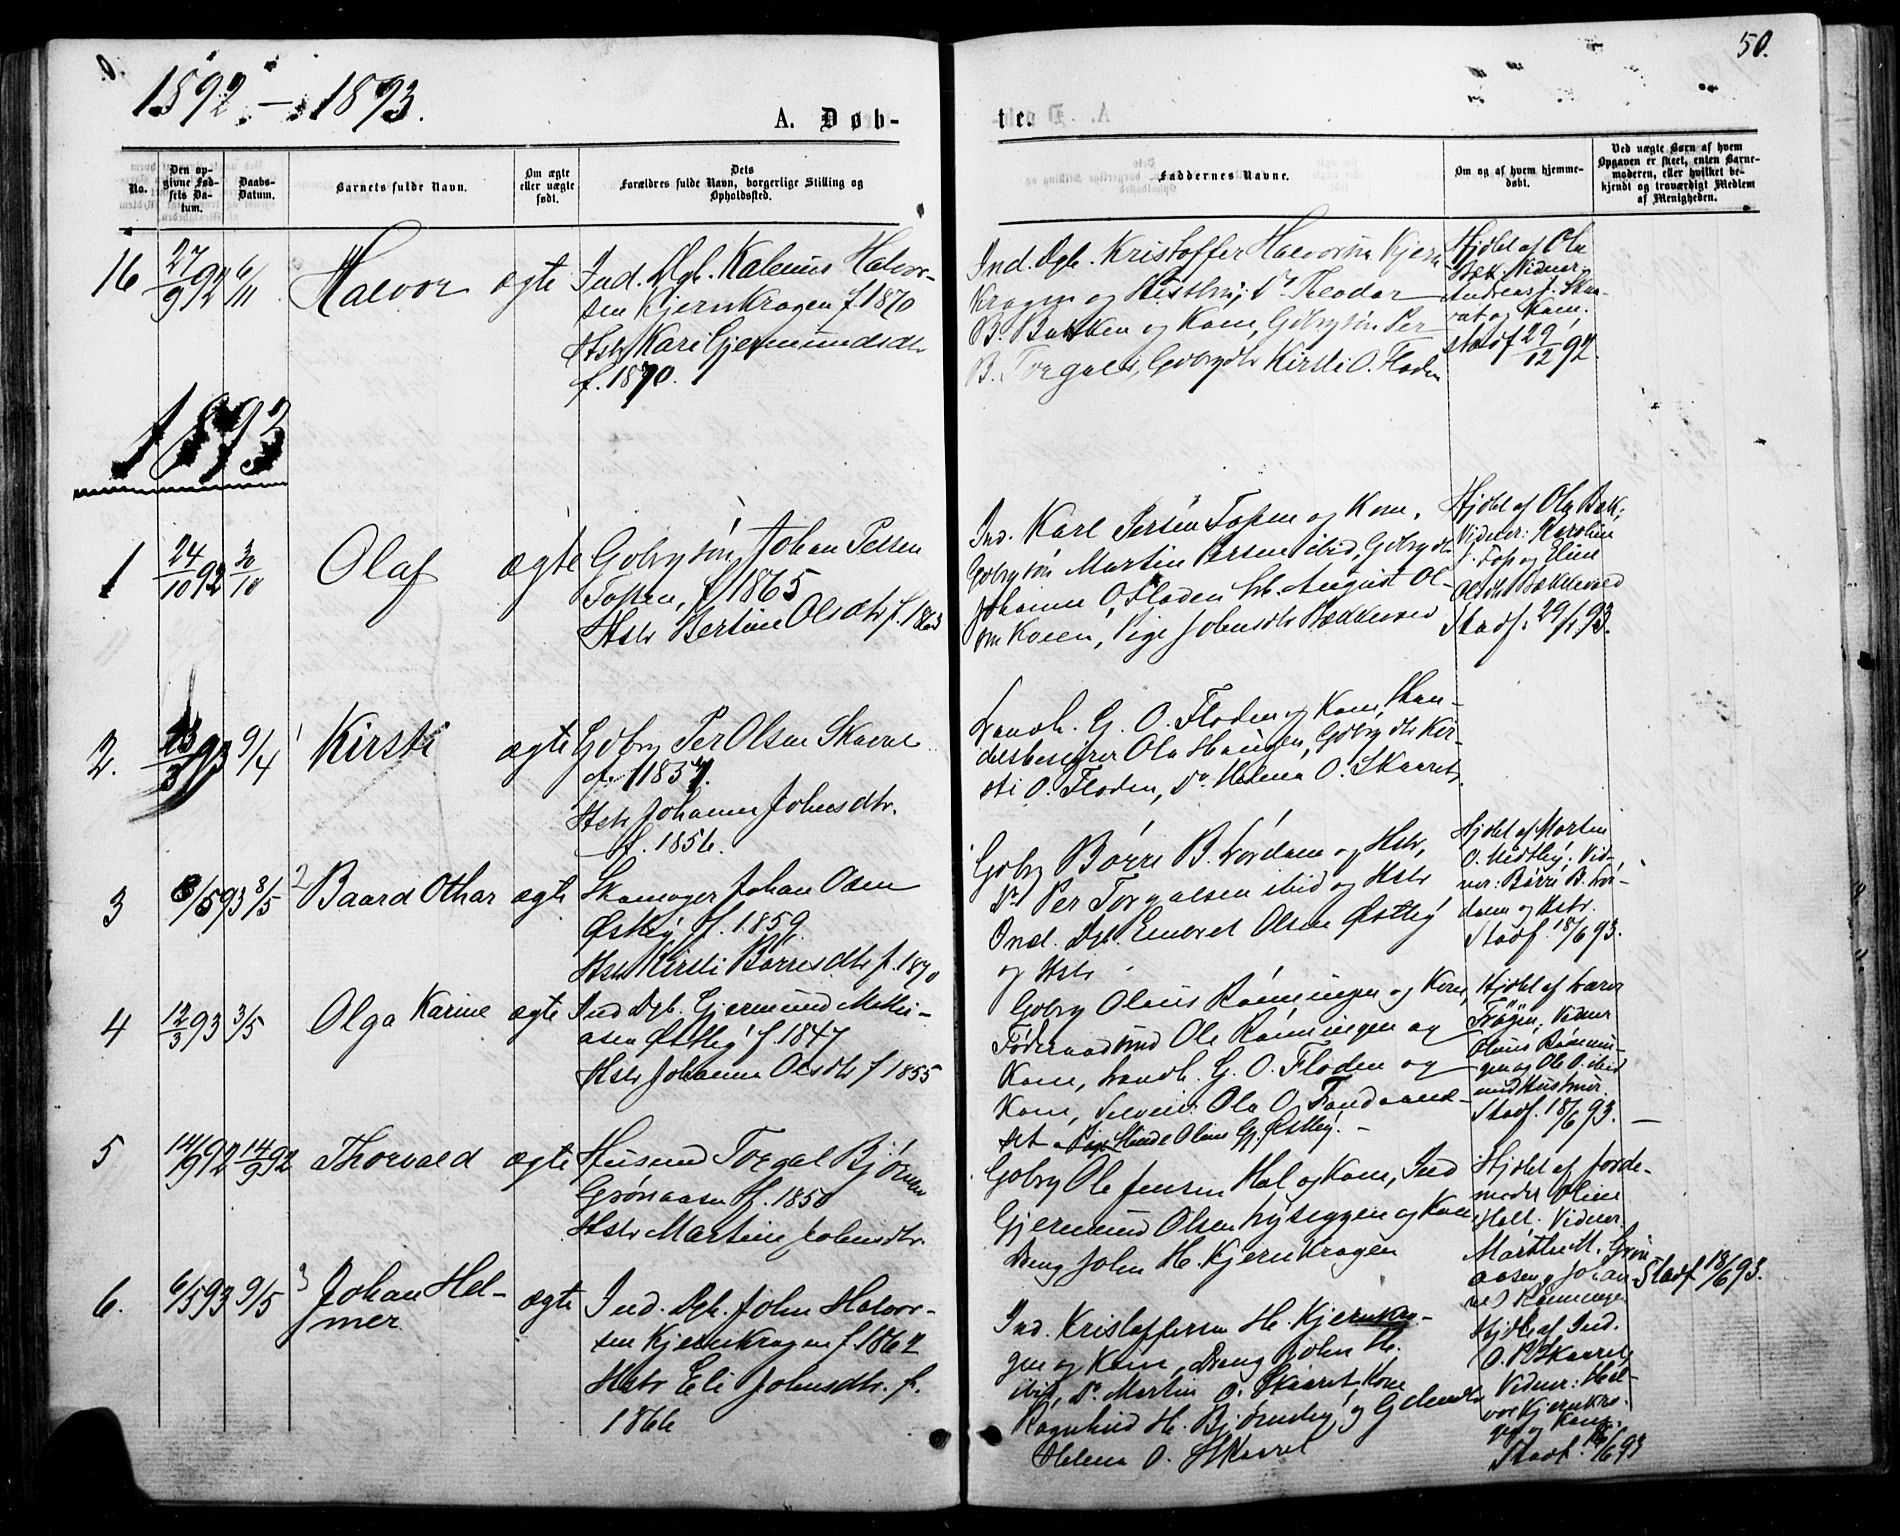 1892 - 1893.
50.
A. Døb-
te.
No.
Den op-
givne Fød-
sels Da-
tum.
Daabs-
Datum.
Barnets fulde Navn.
Om ægte
eller uægte
født.
Dets
Forældres fulde Navn, borgerlige Stilling og
Opholdssted.
Faddernes Navne.
Om og af hvem hjemme-
døbt.
Ved uægte Børn af hvem
Opgaven er skeet, enten Barne-
moderen, eller hvilket be-
kjendt og troværdigt Medlem
af Menigheden.
16
27/9 92
6/11
Halvor
ægte
Ind. Dgl. Kalenius Halvor-
sen Kjernkragen f. 1870
Hstr Kari Gjermundsdtr
f. 1870.
Ind. Dgl. Kristoffer Halvorsen Kjern
kragen og Hustru; Do Theodor
B. Bakken og Kone, Gdbrgsøn Per
B. Torgals, Gdbrgdtr Kirsti O. Floden
Hjdbt af Ola
Bæk; Vidner
Andreas J. Skaa-
ret og Kone.
Stadf 29/12 92.
1893
1
24/10 92
30/10
Olaf
ægte
Gdbrgsøn Johan Persen
Topen, f. 1865
Hstr Bertine Olsdtr f. 1863
Ind. Karl Persen Topen og Kone,
Gdbrgsøn Martin Persen ibid, Gdbrgdtr
Johanne O. Floden, August Ol-
sen Koien, Pige Johnsdtr Bækkevold
Hjdbt af Ola Bæk;
Vidner: Karoline
J. Top og Eline
Olsdtr Bækkevold
Stadf. 29/1 93.
2.
13/3 93
9/4
1
Kirsti
ægte
Gdbrg Per Olsen Skaaret
f. 1857.
Hstr Johanne Johnsdtr.
f. 1856.
Landh. G. O. Floden og Kone, Han-
delsbestyrer Ola Haugen, Gdbrgdtr Kir-
sti O. Floden, Do Helena O. Skaaret.
3
6/5 93
8/5
2
Baard Othar
ægte
Skomager Johan Olsen
Østby f. 1859.
Hstr Kirsti Børresdtr f. 1870
Gdbrg Børre B. Lørdam og Hstr,
Do Per Torgalsen ibid og Hstr
Ind. Dgl. Embret Olsen Østby
og Hstr
Hjdbt af Morten
O. Midtby; Vid-
ner: Børre B. Lør-
dam og Hstr.
Stadf. 18/6 93.
4
12/3 93
3/5
Olga Karine
ægte
Ind Dgl. Gjermund Mathi-
asen Østby f. 1847
Hstr Johanne Olsdtr f 1855
Gdbrg Olaus Rønningen og Kone,
Føderaadsmd Ole Rønningen og
Kone, Landh. G. O. Floden og
Kone, Ola O. Sandaand-
set Pige Oline Gj. Østby.
Hjdbt af Lærer
Trøgen, Vidner
Olaus Rønnin-
gen og Ole O. ibid
med Hustruer
Stadf. 18/6 93.
5
14/9 92
14/9 92
Thorvald
ægte
Husmd Torgal Bjørnsen
Grønaasen f. 1850
Hstr Martine Johnsdtr.
Gdbrg Ole Jensen Hol og Kone, Ind
Gjermund Olsen Lyseggen og Kone
Dreng John H. Kjernkragen
Hjdbt af Jorde-
moder Oline
Holt. Vidner
Marthe M. Grøn
aasen og Johan-
nes Rønningen
Stadf 18/6 93.
6.
6/5 93
9/5
3
Johan Hel-
mer
ægte
Ind. Dgl. John Halvor-
sen Kjernkragen f. 1862
Hstr Eli Johnsdtr. f.
1866
Ind. Kristoffersen H. Kjernkra-
gen og Kone, Dreng John H.
ibid, Do Martin O. Skaaret, Kone
Ragnhild H. Bjørnsby, og
Helena O. Skaaret
Hjdbt af Ind.
O. P. Skaaret,
Vidner: Hal-
vor Kjernkra-
gen og Kone.
Stadf. 18/6 93